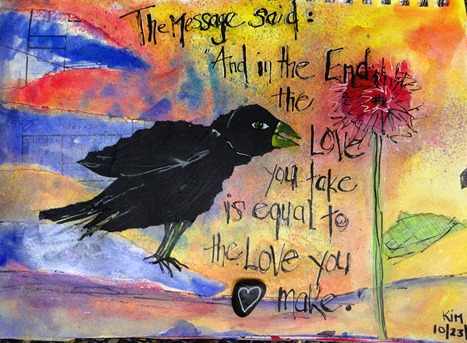 The Message said:
"And in the End
the
Love
you take
is equal to
the Love you
make."
Kim
10/23/